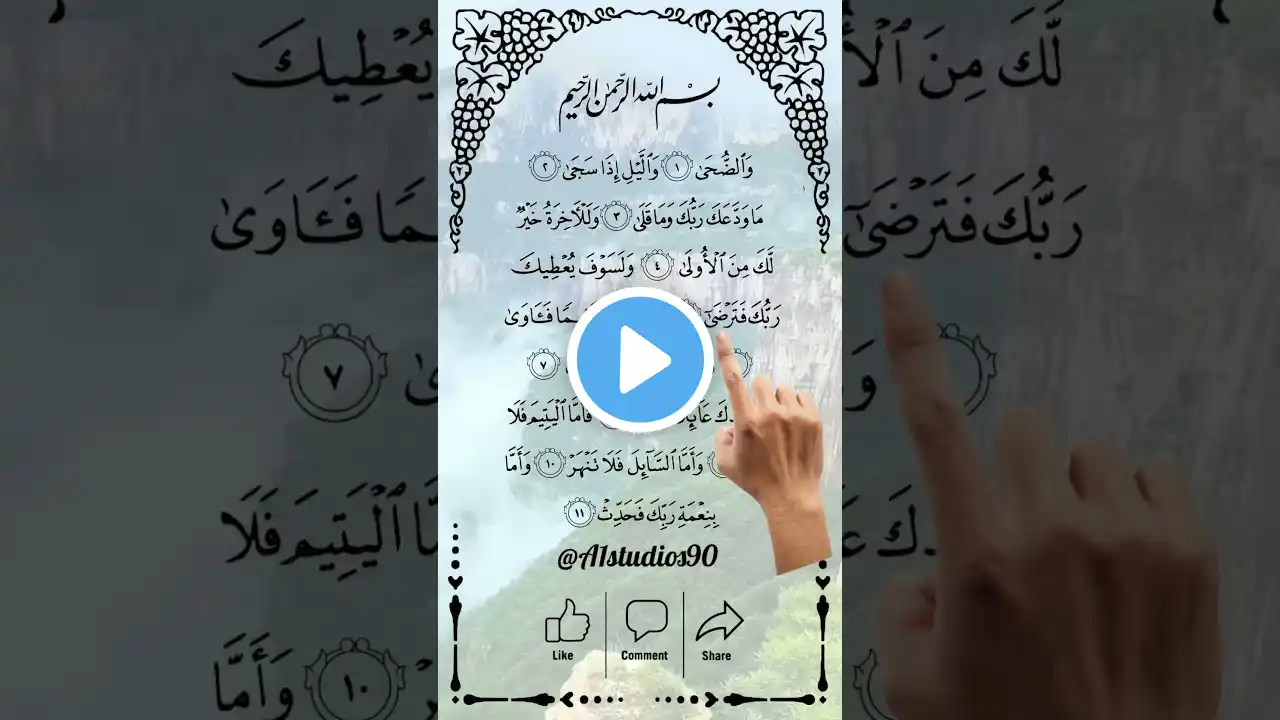 بسم الله الرحمن الرحيم
وَٱلضُّحَىٰ ١ وَٱلَّيْلِ إِذَا سَجَىٰ ٢
مَا وَدَّعَكَ رَبُّكَ وَمَا قَلَىٰ ٣ وَلَلْـَٔاخِرَةُ خَيْرٌ
لَّكَ مِنَ ٱلْأُولَىٰ ٤ وَلَسَوْفَ يُعْطِيكَ
رَبُّكَ فَتَرْضَىٰٓ فَـَٔاوَىٰ
٧
فَأَمَّا ٱلْيَتِيمَ فَلَا
وَأَمَّا ٱلسَّآئِلَ فَلَا تَنْهَرْ ١٠ وَأَمَّا
بِنِعْمَةِ رَبِّكَ فَحَدِّثْ ١١
@A1studios90
Like Comment Share